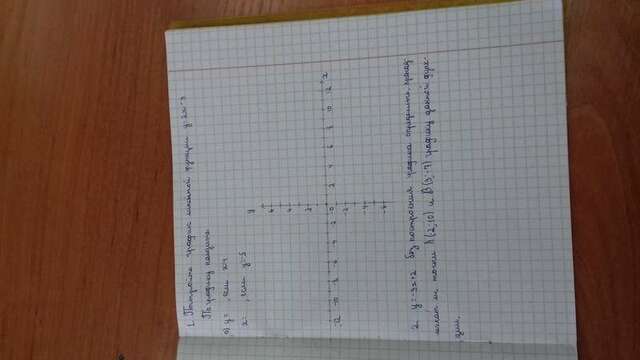 1. Постройте график линейной функции y=2x-3
По графику найдите
а) y= , если x=4
x= , если y=-5
y
6
4
2
-12 -10 -8 -6 -4 -2 0 2 4 6 8 10 12 x
-2
-4
-6
2. y=-3x+2 без построения графика определите, принад-
лежат ли точки A(-2;10) и B(3;-7) графику данной функ-
ции.